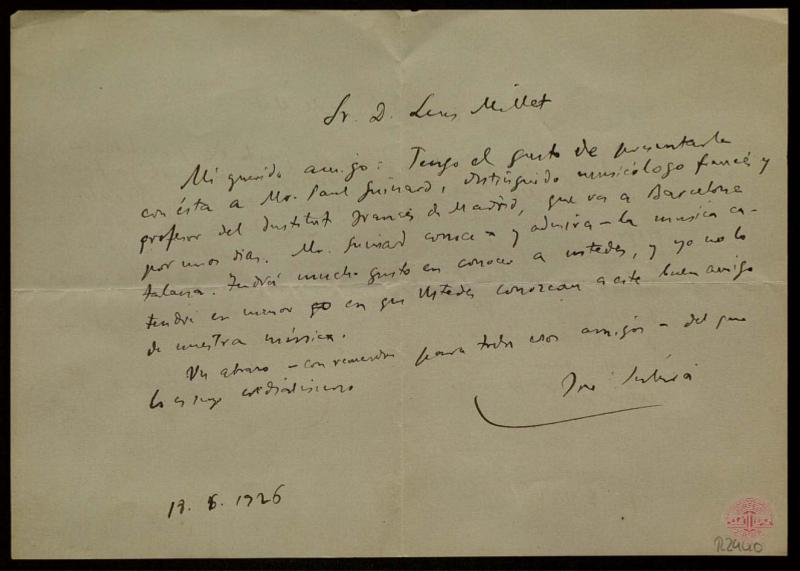 Sr. D. Luis Millet
Mi querido amigo: Tengo el gusto de presentarle
con ésta a Mr. Paul Guinard, distinguido musicólogo francés y
profesor del Institut Francés de Madrid, que va a Barcelona
por unos días. Mr. Guinard conoce - y admira - la música ca-
talana. Tendrá mucho gusto en conocer a ustedes, y yo no lo
tendré en menor en que Ustedes conozcan a este buen amigo
de nuestra música.
Un abrazo - con recuerdos para todos esos amigos - del que
lo es suyo cordialísimo
José Subirá
1926
R2440